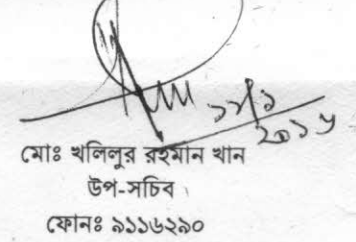 ২০১৬
মোঃ খলিলুর রহমান খান
উপ-সচিব
ফোনঃ ৯১১৬২৯০